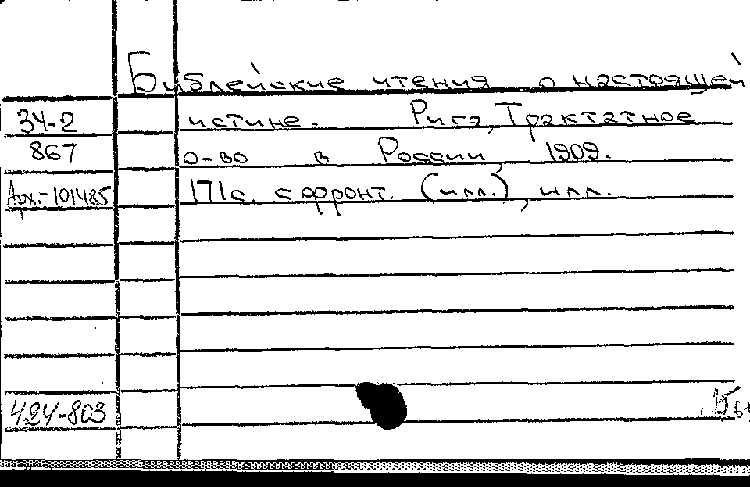 Библейские чтения о настоящей
34-2 истине. Рига, Трактатное
867 о-во в России, 1909.
Арх.-101485 171с. с фронт. (илл.), илл.
424-803